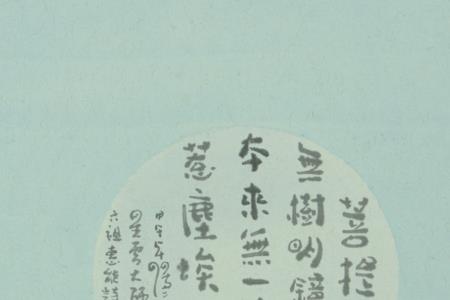 菩提
無樹明鏡
本來無一
惹塵埃
甲午年
雲大師
六祖惠能詩